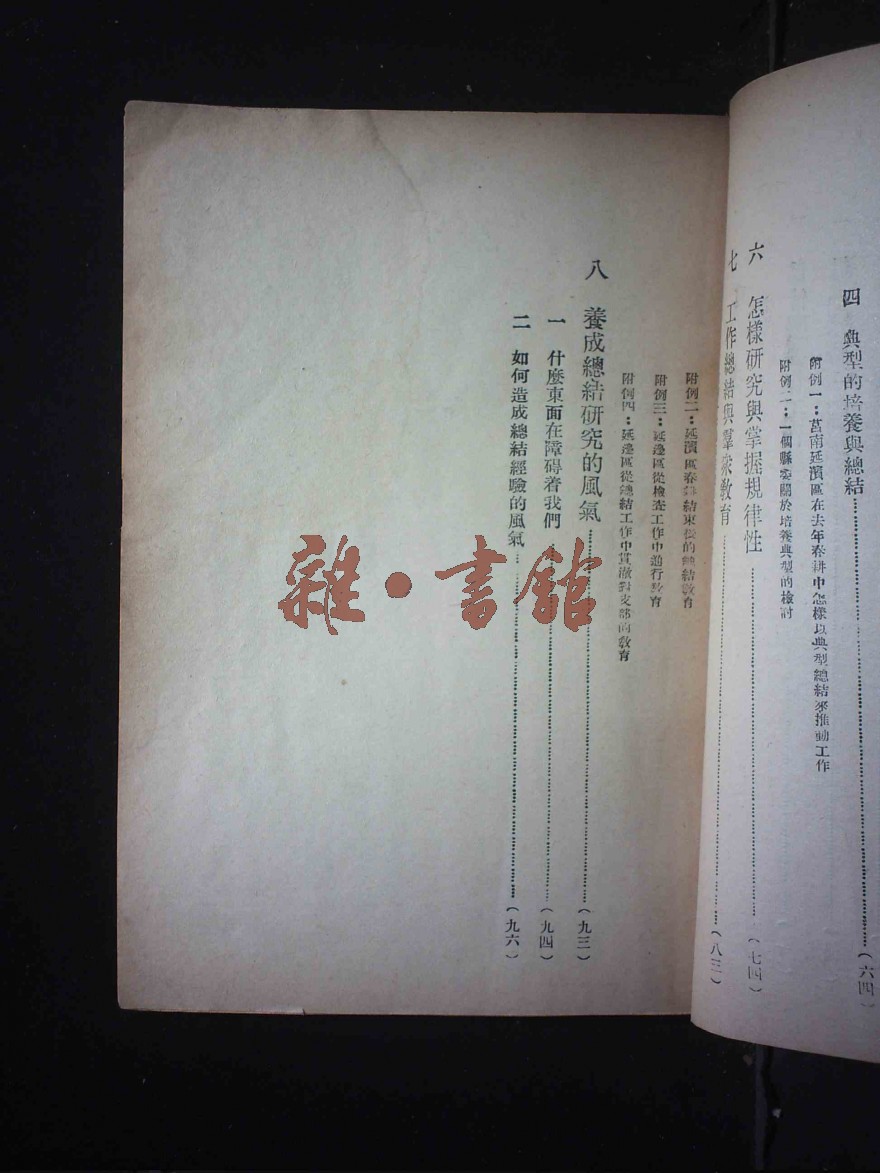 四 典型的培養與總結……(六四)
附例一：莒南延濱區在去年春耕中怎樣以典型總結來推動工作
附例二：一個縣委關於培養典型的檢討
六 怎樣研究與掌握規律性……(七四)
七 工作總結與羣衆教育……(八三)
附例二：延濱區春耕結束後的總結教育
附例三：延邊區從檢查工作中進行教育
附例四：延邊區從總結工作中貫澈對支部的教育
八 養成總結研究的風氣……(九三)
一 什麼東面在障碍着我們……(九四)
二 如何造成總結經驗的風氣……(九六)
雜·書館